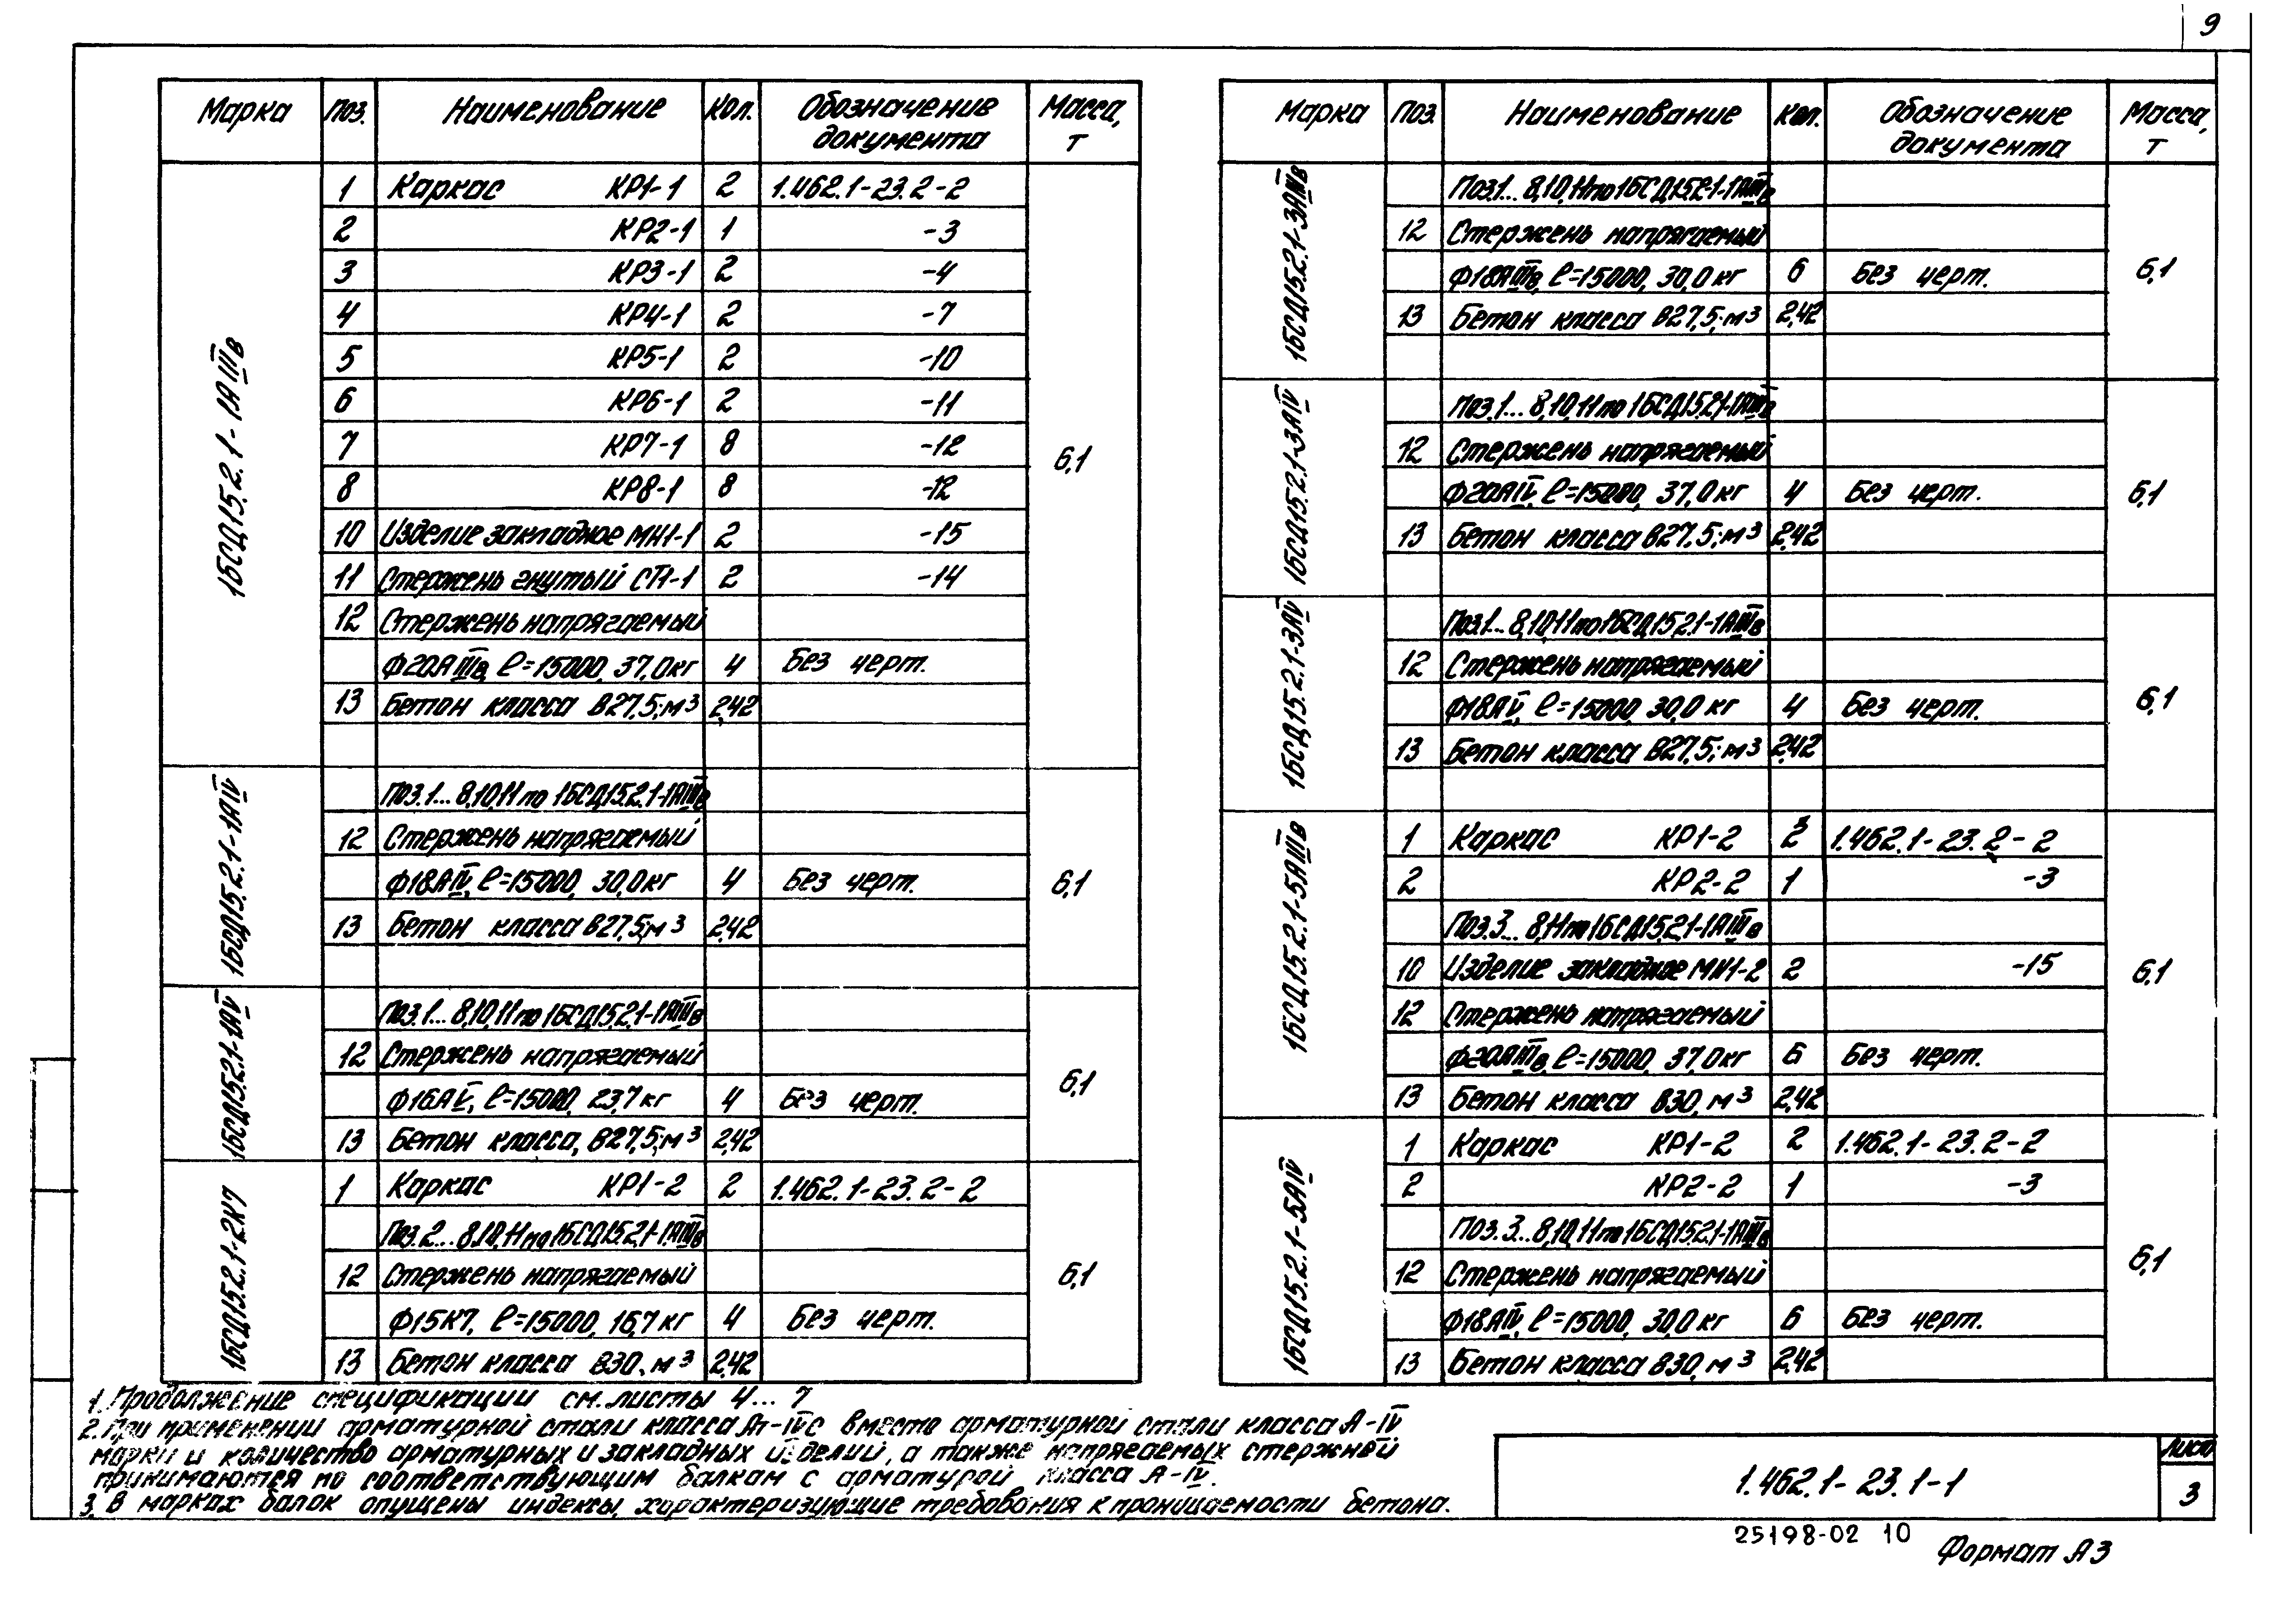 9
Марка поз. Наименование Кол. Обозначение документа Масса, т
1БСД15.2.1-1АIIIв 6,1
1 Каркас КР1-1 2 1.462.1-23.2-2
2 КР2-1 1 -3
3 КР3-1 2 -4
4 КР4-1 2 -7
5 КР5-1 2 -10
6 КР6-1 2 -11
7 КР7-1 8 -12
8 КР8-1 8 -12
10 Изделие закладное МН1-1 2 -15
11 Стержень гнутый СТ1-1 2 -14
12 Стержень напрягаемый
Ф20АIIIв, ℓ=15000, 37,0кг 4 Без черт.
13 Бетон класса В27,5; м³ 2,42
1БСД15.2.1-1АIV 6,1
Поз.1...8,10,11 по 1БСД15.2.1-1АIIIв
12 Стержень напрягаемый
Ф18АIV, ℓ=15000, 30,0кг 4 Без черт.
13 Бетон класса В27,5; м³ 2,42
1БСД15.2.1-1АV 6,1
Поз.1...8,10,11 по 1БСД15.2.1-1АIIIв
12 Стержень напрягаемый
Ф16АV, ℓ=15000, 23,7кг 4 Без черт.
13 Бетон класса, В27,5; м³ 2,42
1БСД15.2.1-2К7 6,1
1 Каркас КР1-2 2 1.462.1-23.2-2
Поз.2...8,10,11 по 1БСД15.2.1-1АIIIв
12 Стержень напрягаемый
Ф15К7, ℓ=15000, 16,7кг 4 Без черт.
13 Бетон класса В30, м³ 2,42
Марка Поз. Наименование Кол. Обозначение документа Масса, т
1БСД15.2.1-3АIIIв 6,1
Поз.1...8,10,11 по 1БСД15.2.1-1АIIIв
12 Стержень напрягаемый
Ф18АIIIв, ℓ=15000, 30,0кг 6 Без черт.
13 Бетон класса В27,5; м³ 2,42
1БСД15.2.1-3АIV 6,1
Поз.1...8,10,11 по 1БСД15.2.1-1АIIIв
12 Стержень напрягаемый
Ф20АIV, ℓ=15000, 37,0кг 4 Без черт.
13 Бетон класса В27,5; м³ 2,42
1БСД15.2.1-3АV 6,1
Поз.1...8,10,11 по 1БСД15.2.1-1АIIIв
12 Стержень напрягаемый
Ф18АV, ℓ=15000, 30,0кг 4 Без черт.
13 Бетон класса В27,5; м³ 2,42
1БСД15.2.1-5АIIIв 6,1
1 Каркас КР1-2 2 1.462.1-23.2-2
2 КР2-2 1 -3
Поз.3...8,11 по 1БСД15.2.1-1АIIIв
10 Изделие закладное МН1-2 2 -15
12 Стержень напрягаемый
Ф20АIIIв, ℓ=15000, 37,0кг 6 Без черт.
13 Бетон класса В30, м³ 2,42
1БСД15.2.1-5АIV 6,1
1 Каркас КР1-2 2 1.462.1-23.2-2
2 КР2-2 1 -3
Поз.3...8,10,11 по 1БСД15.2.1-1АIIIв
12 Стержень напрягаемый
Ф18АIV, ℓ=15000, 30,0кг 6 Без черт.
13 Бетон класса В30, м³ 2,42
1. Продолжение спецификации см. листы 4...7
2. При применении арматурной стали класса Ат-IVС вместо арматурной стали класса А-IV
марки и количество арматурных и закладных изделий, а также напрягаемых стержней
принимаются по соответствующим балкам с арматурой класса А-IV.
3. В марках балок опущены индексы, характеризующие требования к проницаемости бетона.
1.462.1-23.1-1
Лист
3
25198-02 10
Формат А3